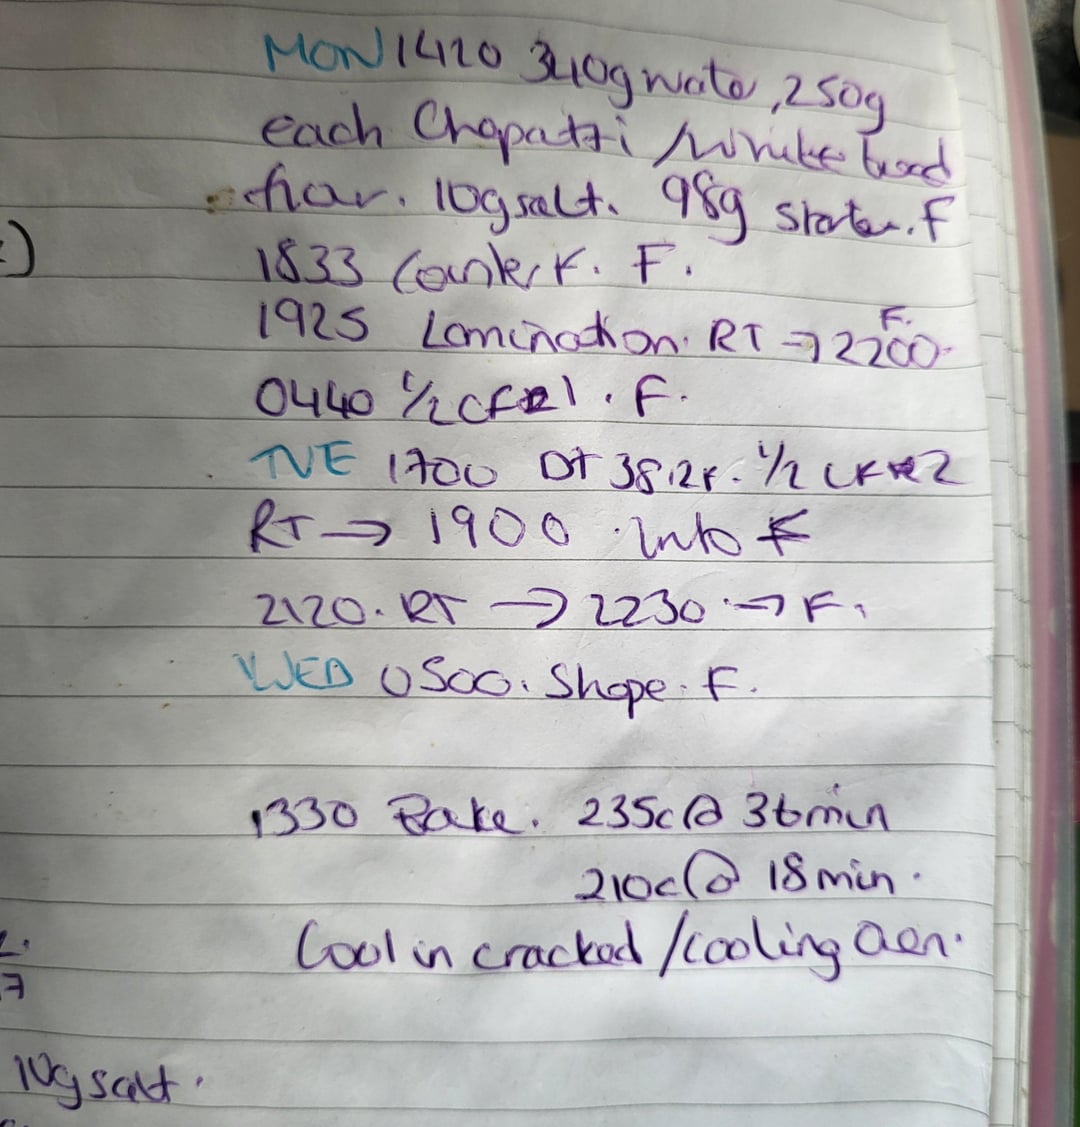 MON 1420 340g water, 250g
each Chapatti / White bread
flour. 10g salt. 98g Starter. F
:)
1833 Counter K. F.
1925 Lamination. RT → 2200. F.
0440 1/2 CF 1. F.
TUE 1700 DT 38.2F. 1/2 CF 2
RT → 1900. Into F
2120. RT → 2230. → F.
WED 0500. Shape. F.
1330 Bake. 235c @ 36min
210c @ 18min.
Cool in cracked / cooling oven.
7
10g salt.